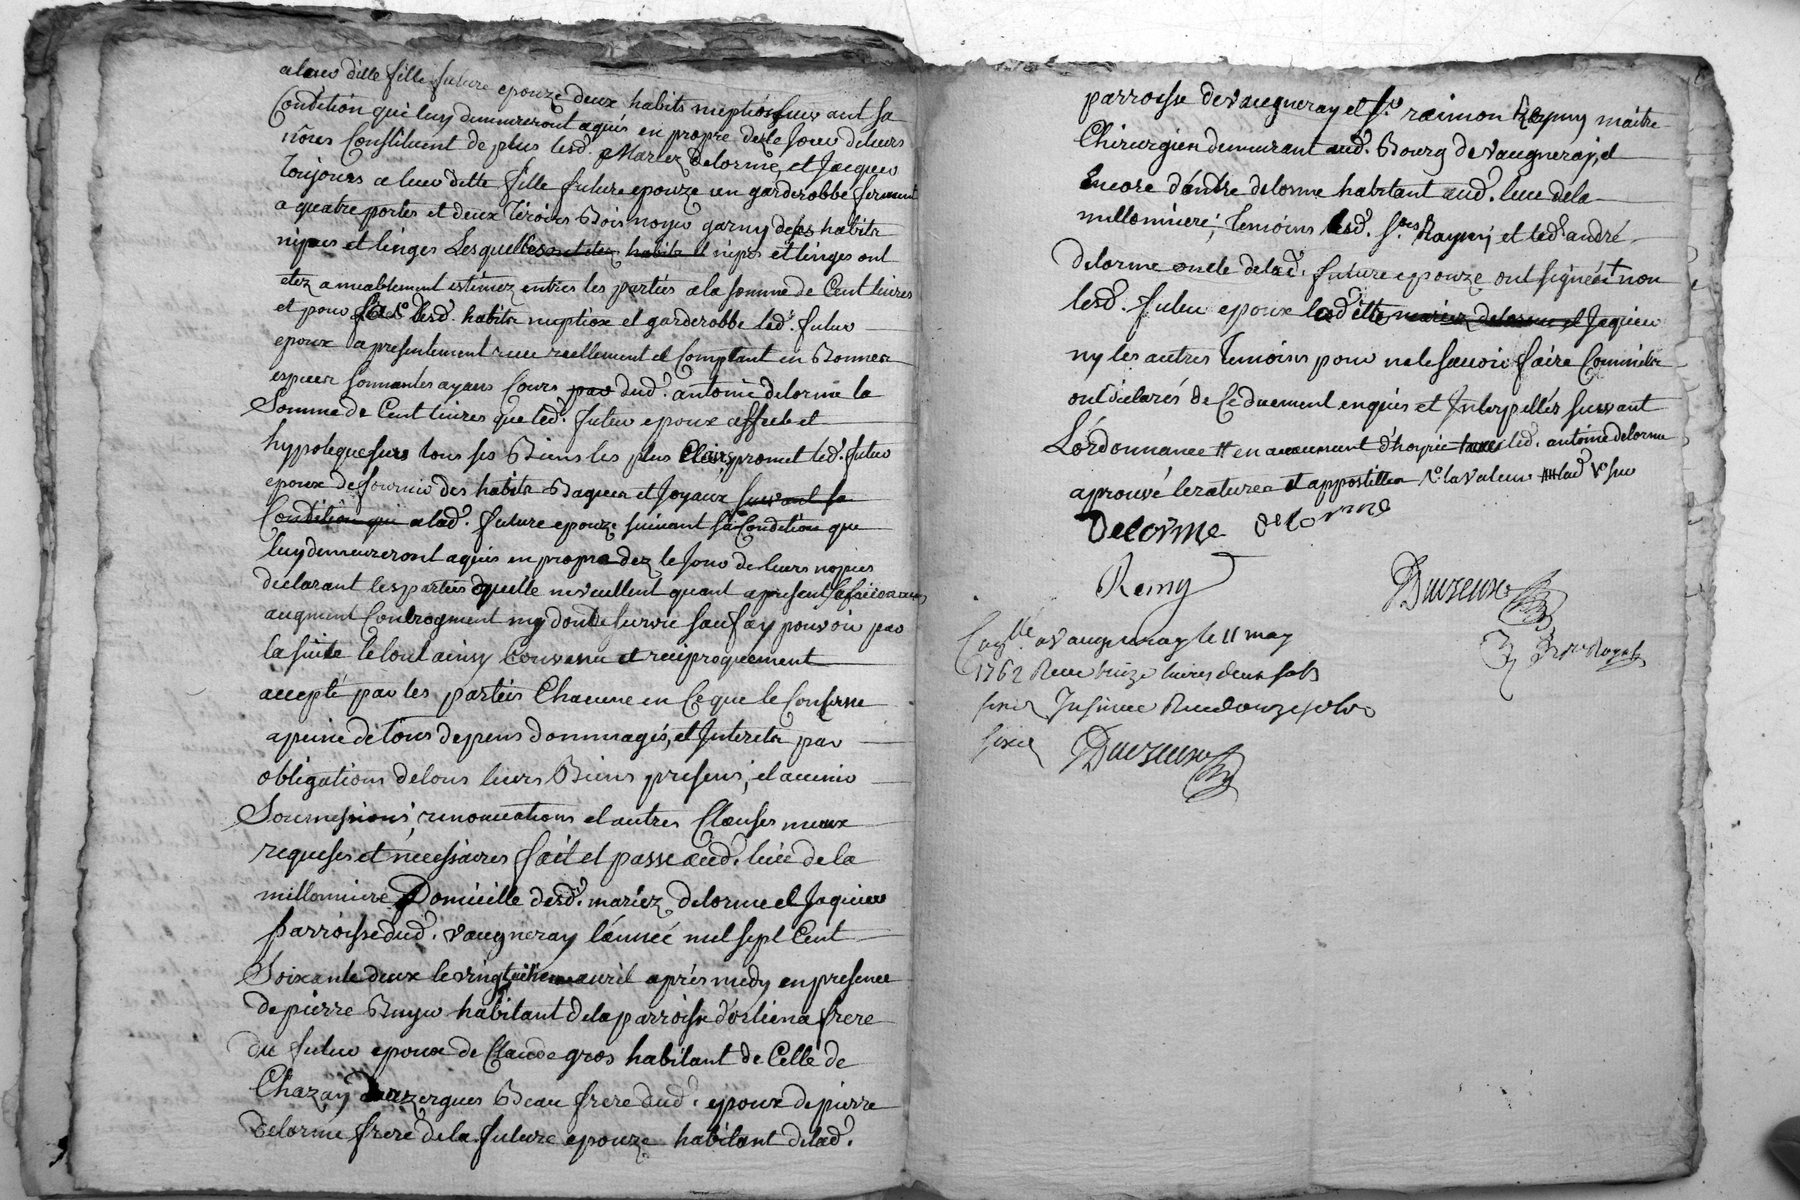 a leur ditte fille future epouze deux habits nuptios suivant sa
Condition qui luy demeureront aquis en propre dez le jour de leurs
nôces Constituent de plus lesd. Mariez Delorme et Jacquier
Toujours a leur ditte fille future epouze un garderobbe fermant
a quatre portes et deux tiroirs Bois noyer garny de ses habits
nipes et linges Lesquelles habits et nipes et linges ont
etez amiablement estimez entres les partiés a la somme de Cent livres
et pour lesd. habits nuptiox et garderobbe led. futur
epoux a presentement reçu reellement et Comptant en Bonnes
especes sonnantes ayans Cours par dud. antoine delorme la
Somme de Cent livres que led. futur epoux affecte et
hypoteque sur tous ses Biens les plus Clairs promet led. futur
epoux de fournir des habits Bagues et Joyaux suivant sa
Condition qui a lad. future epouze suivant sa Condition que
luy demeureront aquis en propre dez le Jour de leurs nopces
declarant les parties quelle ne veullent quant a present
augment Controgment ny dont de survie sauf a y pouvoir par
la suite le tout ainsy Convenu et reciproquement
accepté par les partéis Chacune en Ce que le Conserne
a peine de tous depens dommagés, et Interets par
obligations de tous leurs Biens presens, et avenir
Soumessions renonciations et autres Clauses
requeses et necessaires fait et passé aud. lieu de la
millonniere Domicille desd. mariez Delorme et Jaquier
parroisse dud. vaugneray l'année mil sept Cent
Soixante deux le vingt avril aprés midy en presence
de pierre habitant de la parroisse d'orliena frere
du futur epoux de Claude gros habitant de Celle de
Chazay Dazergues Beau frere dud. epoux de pierre
Delorme frere de la future epouze habitant de lad.
parroisse de vaugneray et Sr. raimon maitre
Chirurgien demeurant aud. Bourg de vaugneray, et
Encore d'andré delorme habitant aud. lieu de la
millonniere; temoins lesd. Srs et led. andré
Delorme oncle de lad. future epouze ont signéés + non
lesd. futeu epoux mariez delorme et Jaquier
ny les autres temoins pour ne le savoir faire Comme ils
ont declarés de Ce duement enquis et Interpellés suivant
L'ordonnance # en avancement d'hoyrie led. antoine delorme
aprouvé les ratures et appostilles
Delorme delorme
Remy
Duvreux
Con.lle a vaugneray le 11 may
1762 Reçu livres deux sols
Insinué Reçu sols
Duvreux